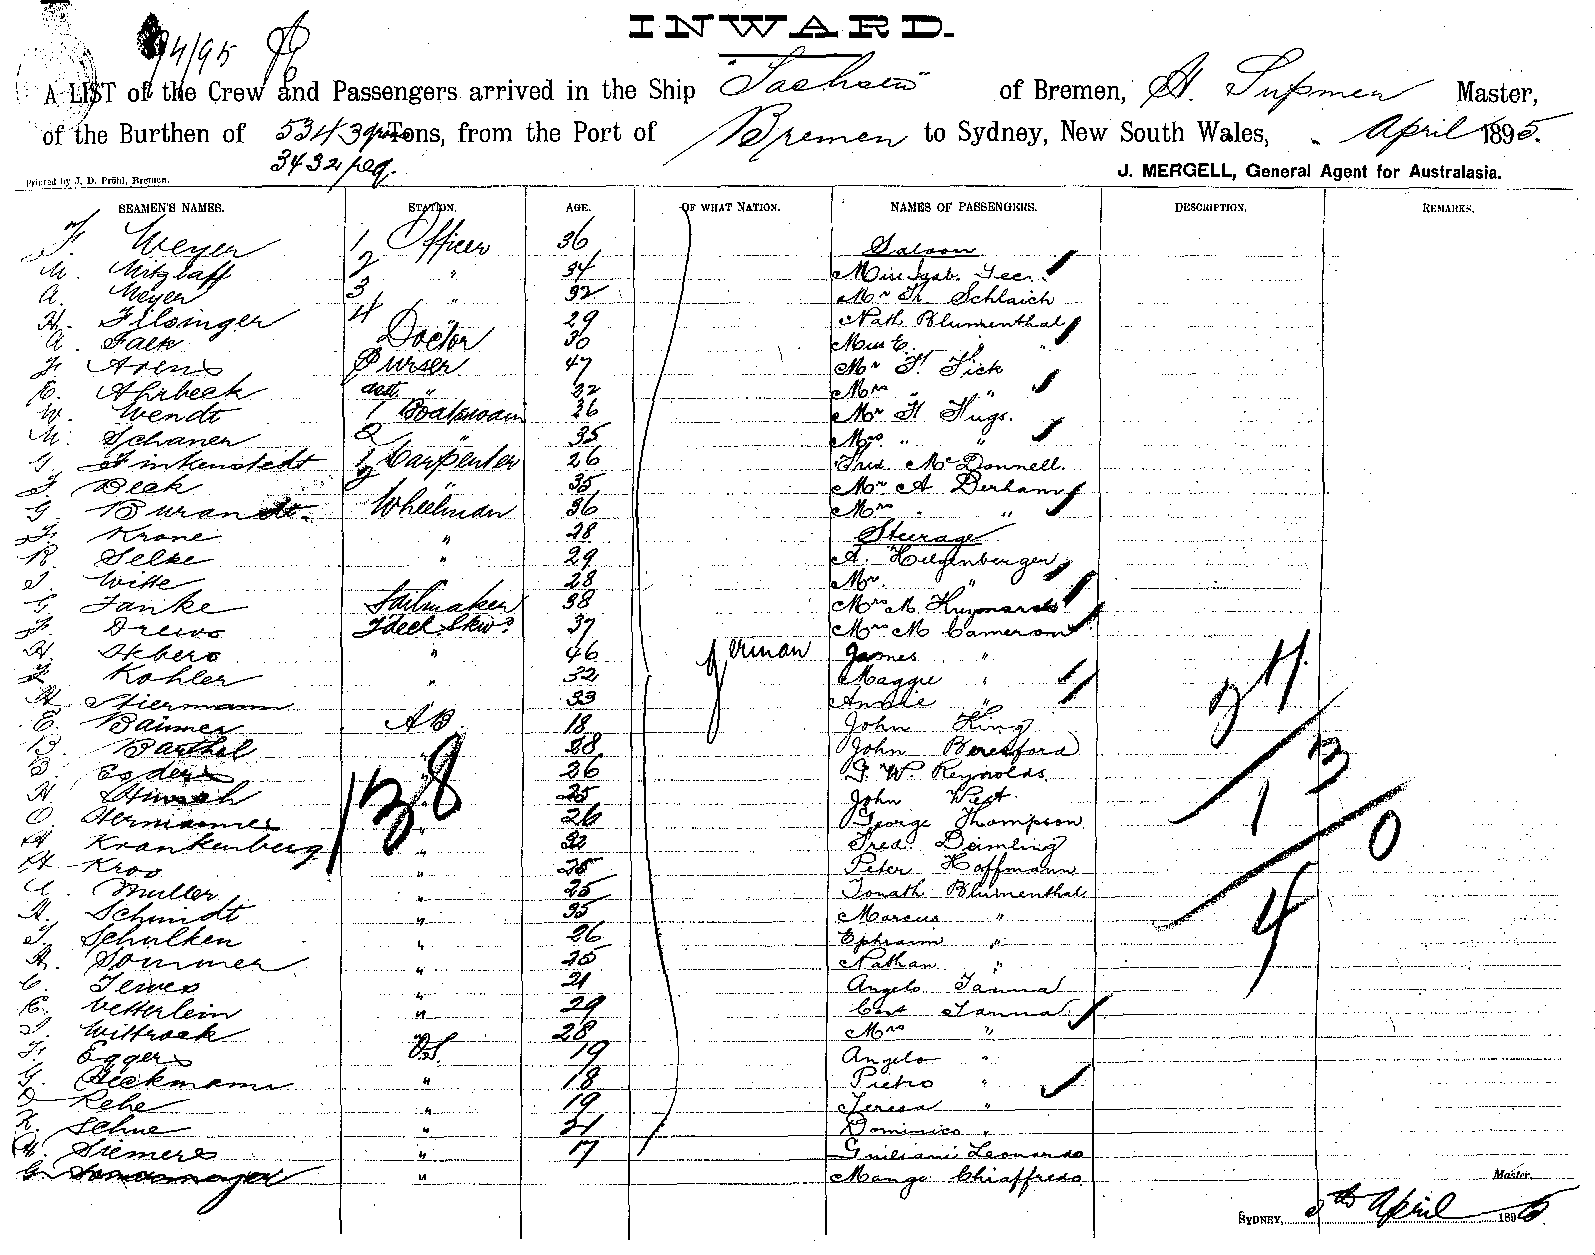 INWARD.
94/95
A LIST of the Crew and Passengers arrived in the Ship "Sachsen" of Bremen, H. Supmer Master,
of the Burthen of 5343 gross Tons, from the Port of Bremen to Sydney, New South Wales, April 1895.
3432 reg.
J. MERGELL, General Agent for Australasia.
Printed by J. D. Pröhl, Bremen.
SEAMEN'S NAMES. STATION. AGE. OF WHAT NATION. NAMES OF PASSENGERS. DESCRIPTION. REMARKS.
F. Meyer 1 Officer 36 Saloon
M. Mitzlaff 2 " 34 Miss Isab. Lee
A. Meyer 3 " 32 Mr Fr. Schlaich
H. Filsinger 4 29 Nath Blumenthal
A. Falk Doctor 30 Miss C. "
F. Arens Purser 47 Mr F. Fick
E. Ahrbeck asst. " 32 Mrs " "
W. Wendt 1 Boatswain 26 Mr H Hugs.
M. Schaner 2 " 35 Mrs " "
G Finkenstedt 1 Carpenter 26 Fred McDonnell.
F Beck 2 " 35 Mr A Derham
G Burandt. Wheelman 36 Mrs " "
Fr Krone " 28 Steerage
R. Selke " 29 A. Hilgenberger
J. Witte 28 Mr. "
G. Janke Sailmaker 38 Mrs M.
F. Drews Fdeck Skws 37 Mrs M Cameron
H. Ekbero " 46 German James "
F. Kohler " 32 Maggie "
H Niermann 33 Annie "
E. Bäumer AB. 18 John King
B. Barthel 28 John Beresford
D. 26 G. W. Reynolds
H 25 John West.
O. 26 George Thompson
H Krankenberg " 32 Fred. Deimling
H Kroo " 25 Peter Hoffmann
A. Muller " 25 Jonath Blumenthal
H. Schmidt " 35 Marcus "
J. Schulken " 26 Ephraim "
A. Sommer " 25 Nathan "
C. Tewes " 21 Angelo Tanna
E. Vetterlein " 29 Tanna
J. Wittrock " 28 Mrs "
Fr. Eggers OS. 19 Angelo "
G. Beckmann " 18 Pietro "
D Rehe " 19 Teresa "
H. Sehne " 21 Dominico "
H. Siemers " 17 Giuliani Leonardo
G. " Mango Chiaffredo
138
24
13
1 0
4
Master.
SYDNEY, 5th April 1895